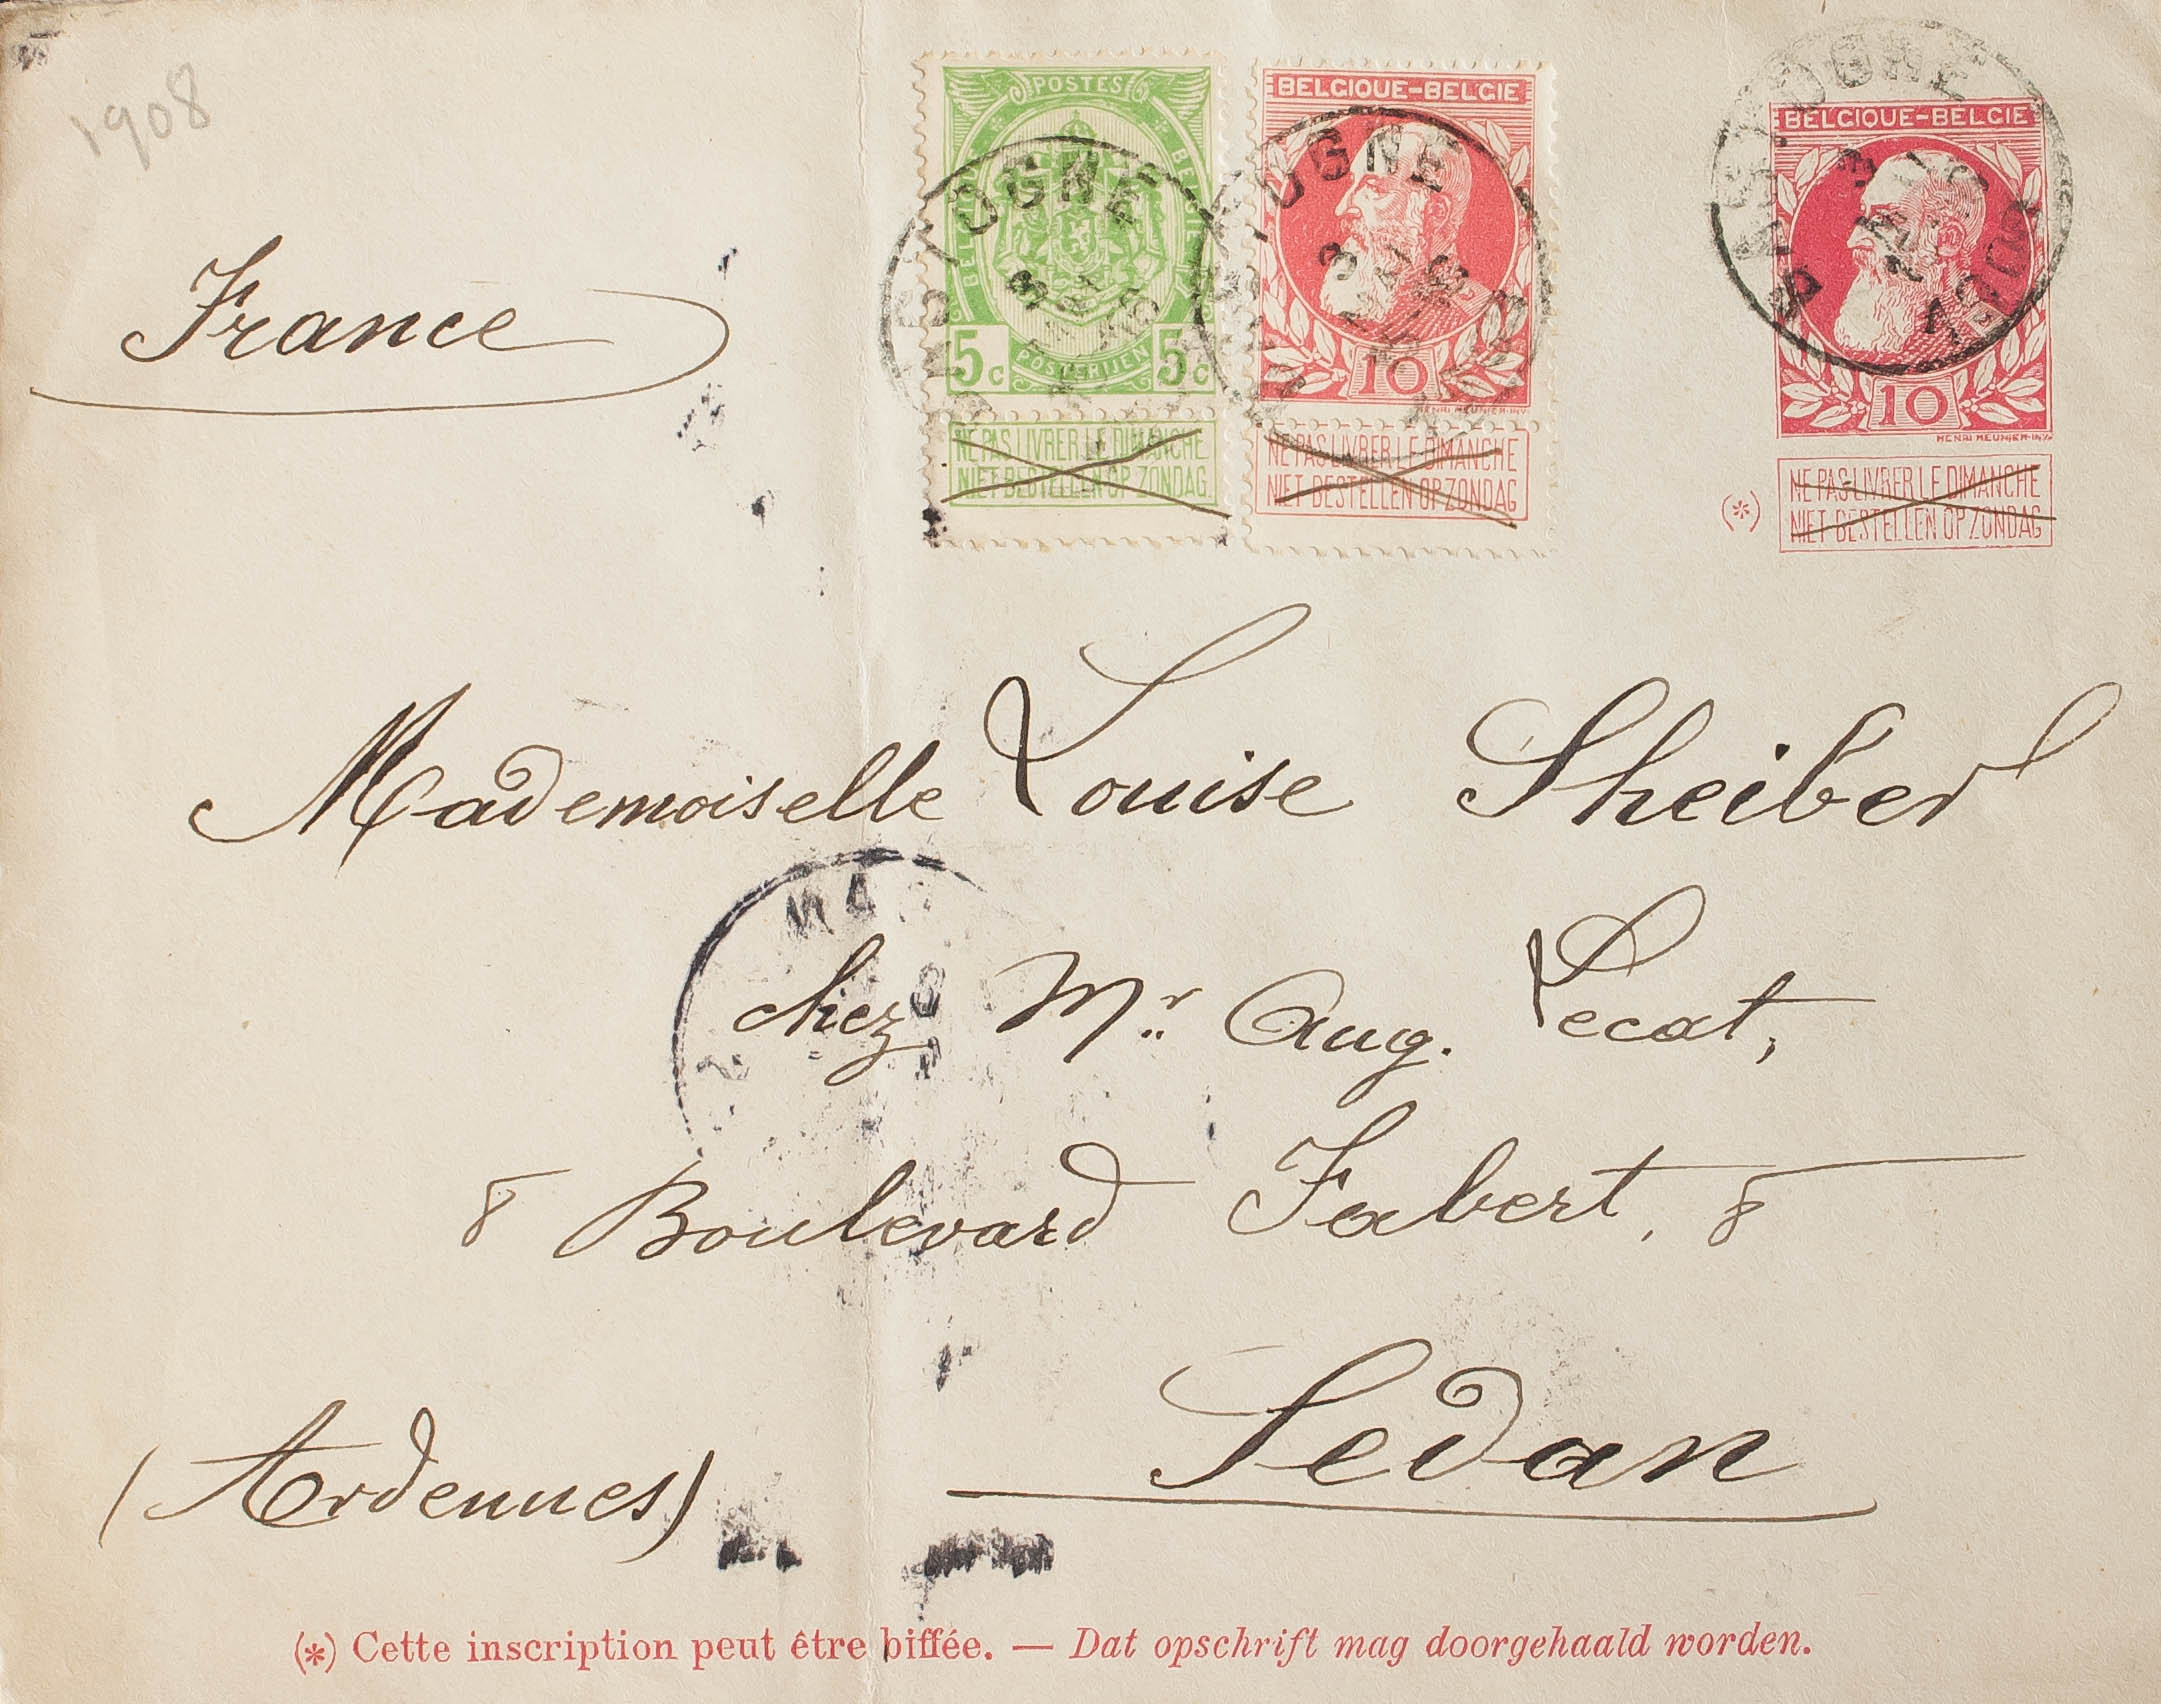 1908
POSTES
BELGIQUE
BELGIË
5c
POSTERIJEN
5c
NE PAS LIVRER LE DIMANCHE
NIET BESTELLEN OP ZONDAG
BELGIQUE-BELGIE
10
HENRI MEUNIER.INV.
NE PAS LIVRER LE DIMANCHE
NIET BESTELLEN OP ZONDAG
BELGIQUE-BELGIE
10
HENRI MEUNIER.INV.
(*)
NE PAS LIVRER LE DIMANCHE
NIET BESTELLEN OP ZONDAG
BASTOGNE
BASTOGNE
BASTOGNE
France
Mademoiselle Louise Sheiber
chez Mr. Aug. Lecat,
8 Boulevard Fabert, 8
Sedan
(Ardennes)
(*) Cette inscription peut être biffée. — Dat opschrift mag doorgehaald worden.